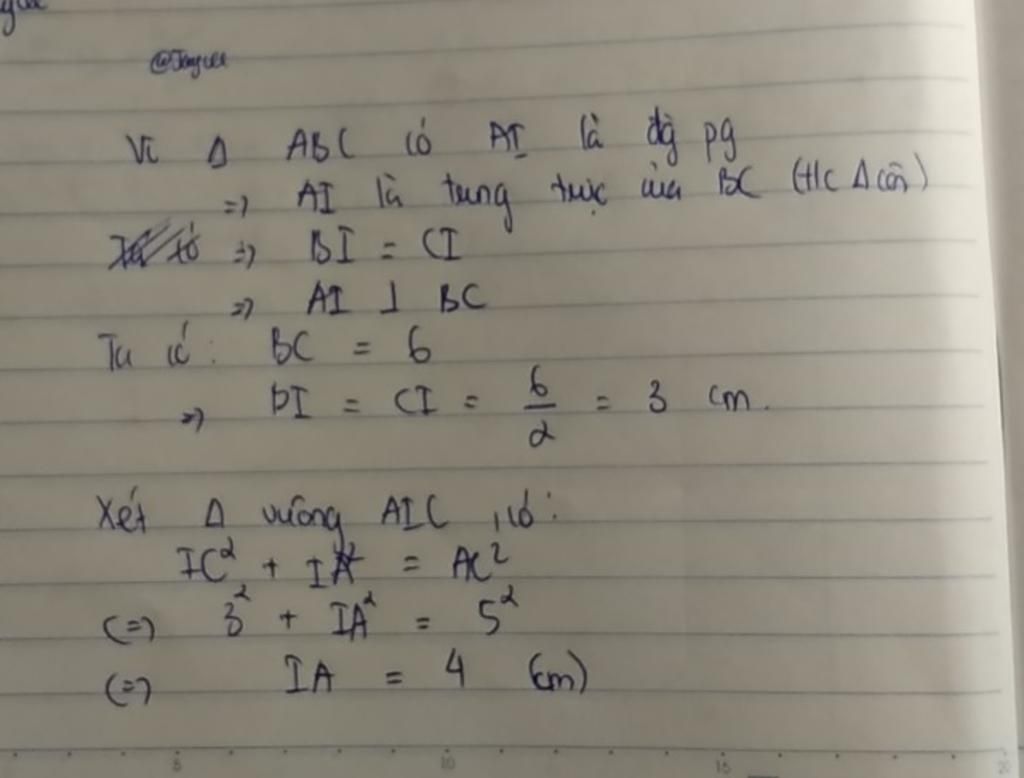 Vì Δ ABC có AI là đg pg
=> AI là trung trực của BC (t/c Δ cân)
=> BI = CI
=> AI ⊥ BC
Ta có: BC = 6
=> BI = CI = 6/2 = 3 cm.
Xét Δ vuông AIC, có:
IC² + IA² = AC²
<=> 3² + IA² = 5²
<=> IA = 4 (cm)
5 10 15 20